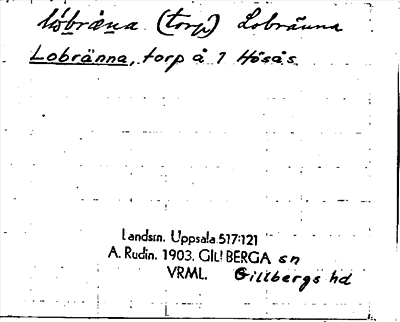 lo̤bræ̤na (torp) Lobränna
Lobränna, torp å 1 Hösås.
Landsm. Uppsala 517:121
A. Rudin. 1903. GILLBERGA sn
VRML. Gillbergs hd